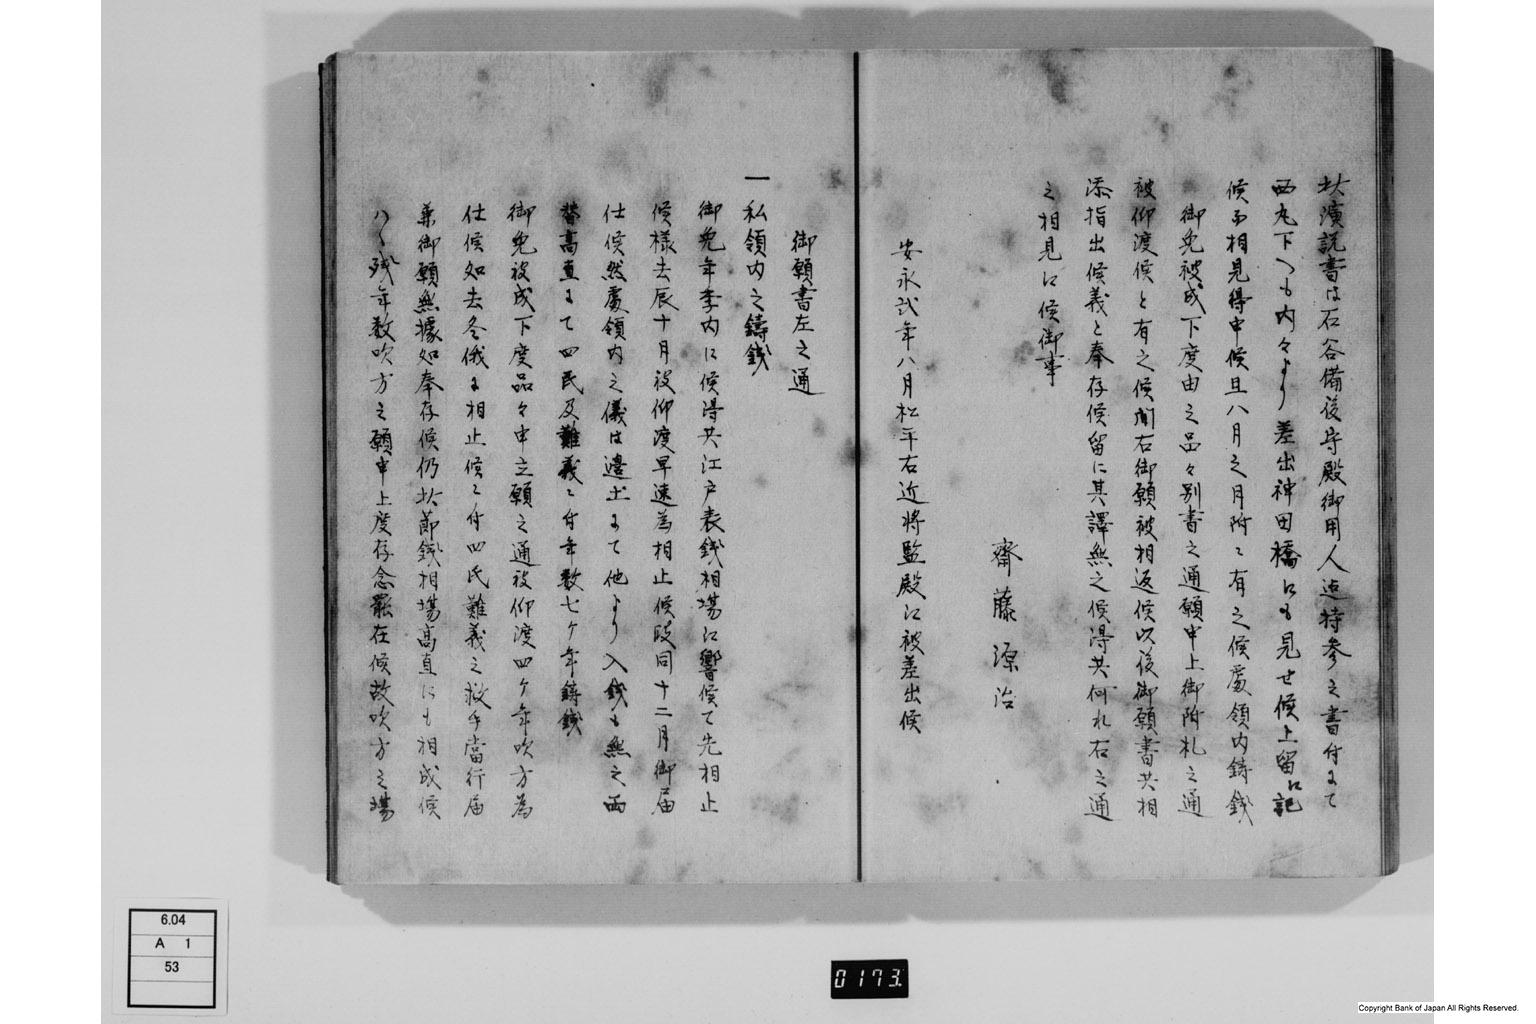 此演説書は石谷備後守殿御用人迠持参之書付ニて
西丸下へも内々より差出神田橋江も見せ候上留ニ記
候而相見得申候且八月之月附ニ有之候處領内鋳銭
御免被成下度由之品々別書之通願申上御附札之通
被仰渡候と有之候間右御願被相返候以後御願書共相
添指出候義と奉存候留ニ其譯無之候得共何れ右之通
之相見江候御事
齋藤源治
安永弐年八月松平右近將監殿江被差出候
御願書左之通
一私領内之鋳銭
御免年季内ニ候得共江戸表銭相場江響候て先相止
候様去辰十月被仰渡早速為相止候段同十二月御届
仕候然處領内之儀は邊土ニて他より入銭も無之両
替高直ニて四民及難義ニ付年数七ケ年鋳銭
御免被成下度品々申立願之通被仰渡四ケ年吹方為
仕候如去冬俄ニ相止候ニ付四民難義之救手當行届
兼御願無據如奉存候仍此節銭相場高直にも相成候
ハヽ残年数吹方之願申上度存念罷在候故吹方之場
6.04
A 1
53
0173.
Copyright Bank of Japan All Rights Reserved.